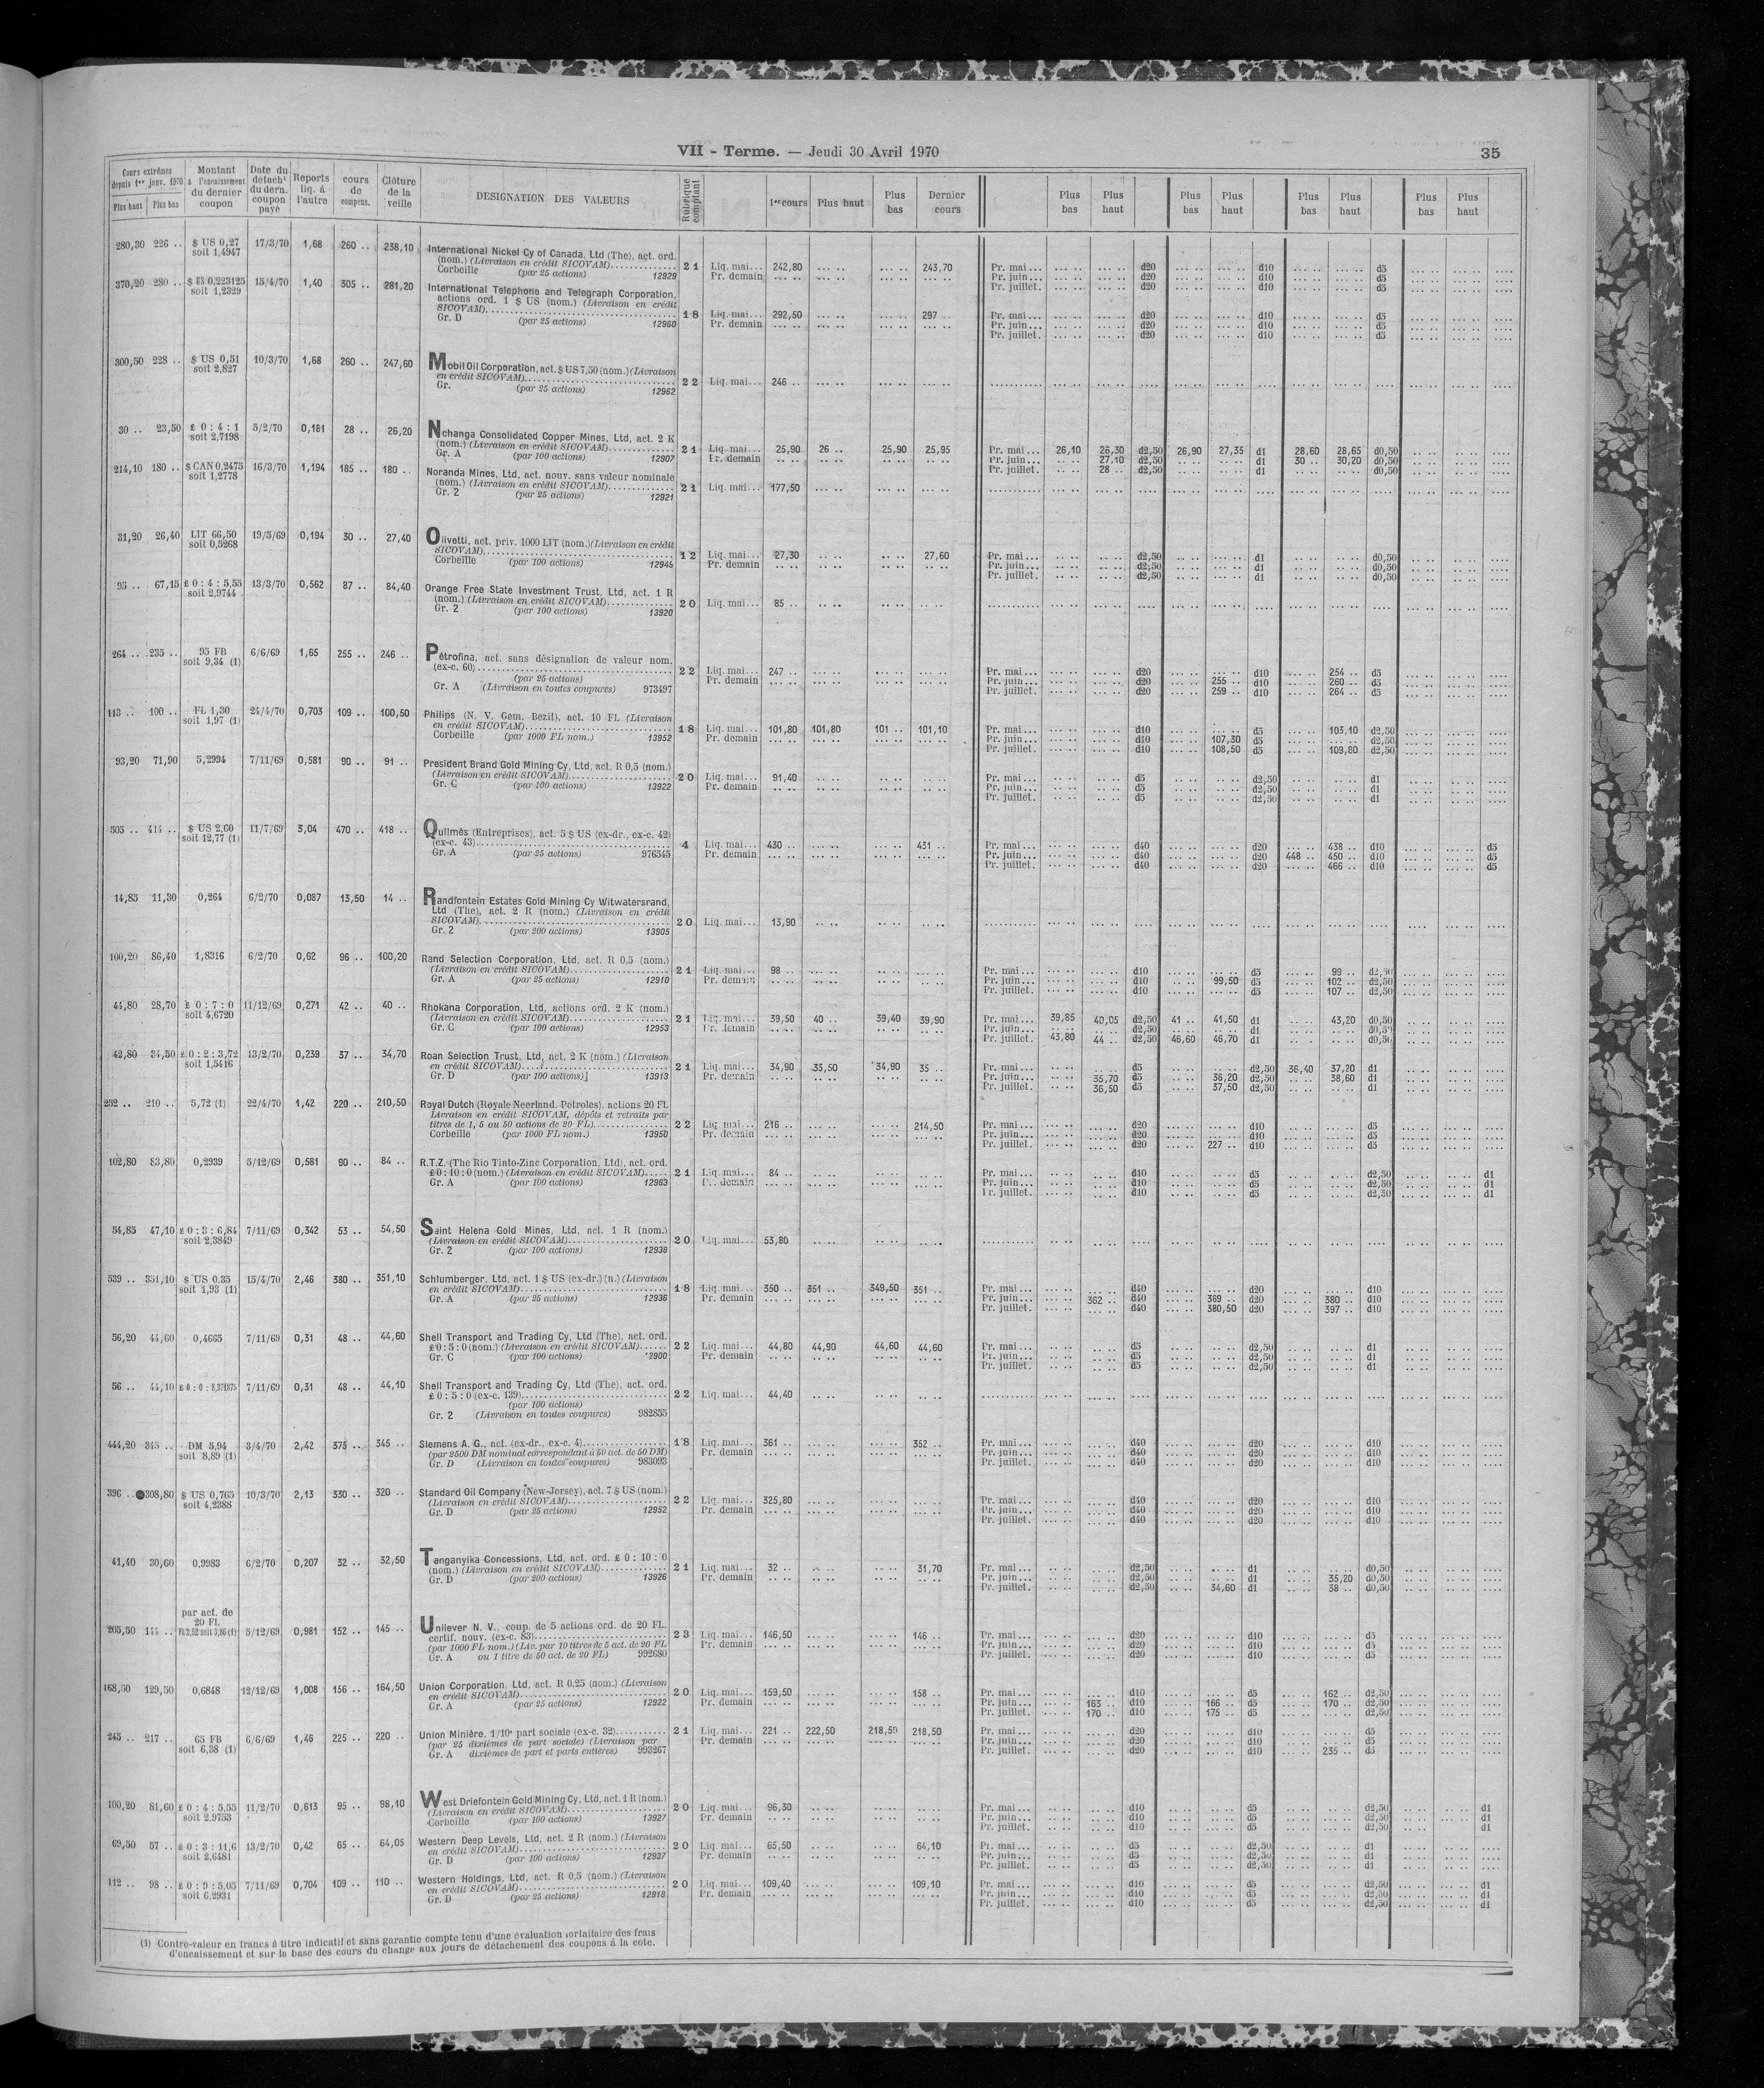 VII - Terme. — Jeudi 30 Avril 1970
35
Cours extrêmes depuis 1er janv. 1970 Plus haut Plus bas | Montant à l'encaissement du dernier coupon | Date du détacht du dern. coupon payé | Reports liq. à l'autre | cours de compens. | Clôture de la veille | DESIGNATION DES VALEURS | Rubrique comptant | 1er cours | Plus haut | Plus bas | Dernier cours | Plus bas | Plus haut | Plus bas | Plus haut | Plus bas | Plus haut | Plus bas | Plus haut
280,30 226 .. $ US 0,27 soit 1,4947 17/3/70 1,68 260 .. 238,10
International Nickel Cy of Canada, Ltd (The), act. ord.
(nom.) (Livraison en crédit SICOVAM) 21 Liq. mai... 242,80 243,70 Pr. mai... d20 d10 d5
Corbeille (par 25 actions) 12929 Pr. demain Pr. juin... d20 d10 d5
Pr. juillet. d20 d10 d5
370,20 280 .. soit 1,2329 15/4/70 1,40 305 .. 281,20
International Telephone and Telegraph Corporation,
actions ord. 1 $ US (nom.) (Livraison en crédit
SICOVAM) 18 Liq. mai... 292,50 297 .. Pr. mai... d20 d10 d5
Gr. D (par 25 actions) 12960 Pr. demain Pr. juin... d20 d10 d5
Pr. juillet. d20 d10 d5
300,50 228 .. $ US 0,51 soit 2,827 10/3/70 1,68 260 .. 247,60
Mobil Oil Corporation, act. $ US 7,50 (nom.) (Livraison
en crédit SICOVAM) 22 Liq. mai... 246 ..
Gr. (par 25 actions) 12962
30 .. 23,50 £ 0 : 4 : 1 soit 2,7198 5/2/70 0,181 28 .. 26,20
Nchanga Consolidated Copper Mines, Ltd, act. 2 K
(nom.) (Livraison en crédit SICOVAM) 21 Liq. mai... 25,90 26 .. 25,90 25,95 Pr. mai... 26,10 26,30 d2,50 26,90 27,35 d1 28,60 28,65 d0,50
Gr. A (par 100 actions) 12907 Pr. demain Pr. juin... 27,10 d2,50 d1 30 .. 30,20 d0,50
Pr. juillet. 28 .. d2,50 d1 d0,50
214,10 180 .. $ CAN 0,2475 soit 1,2778 16/3/70 1,194 185 .. 180 ..
Noranda Mines, Ltd, act. nouv. sans valeur nominale
(nom.) (Livraison en crédit SICOVAM) 21 Liq. mai... 177,50
Gr. 2 (par 25 actions) 12921
31,20 26,40 LIT 66,50 soit 0,5268 19/5/69 0,194 30 .. 27,40
Olivetti, act. priv. 1000 LIT (nom.) (Livraison en crédit
SICOVAM) 12 Liq. mai... 27,30 27,60 Pr. mai... d2,50 d1 d0,50
Corbeille (par 100 actions) 12945 Pr. demain Pr. juin... d2,50 d1 d0,50
Pr. juillet. d2,50 d1 d0,50
95 .. 67,15 £ 0 : 4 : 5,55 soit 2,9744 13/3/70 0,562 87 .. 84,40
Orange Free State Investment Trust, Ltd, act. 1 R
(nom.) (Livraison en crédit SICOVAM) 20 Liq. mai... 85 ..
Gr. 2 (par 100 actions) 13920
264 .. 235 .. 95 FB soit 9,34 (1) 6/6/69 1,65 255 .. 246 ..
Pétrofina, act. sans désignation de valeur nom.
(ex-c. 60) 22 Liq. mai... 247 .. Pr. mai... d20 d10 254 .. d5
(par 25 actions) Pr. demain Pr. juin... d20 255 .. d10 260 .. d5
Gr. A (Livraison en toutes coupures) 973497 Pr. juillet. d20 259 .. d10 264 .. d5
113 .. 100 .. FL 1,30 soit 1,97 (1) 24/4/70 0,703 109 .. 100,50
Philips (N. V. Gem. Bezit), act. 10 FL (Livraison
en crédit SICOVAM) 18 Liq. mai... 101,80 101,80 101 .. 101,10 Pr. mai... d10 d5 103,10 d2,50
Corbeille (par 1000 FL nom.) 13952 Pr. demain Pr. juin... d10 107,30 d5 d2,50
Pr. juillet. d10 108,50 d5 109,80 d2,50
93,20 71,90 5,2994 7/11/69 0,581 90 .. 91 ..
President Brand Gold Mining Cy, Ltd, act. R 0,5 (nom.)
(Livraison en crédit SICOVAM) 20 Liq. mai... 91,40 Pr. mai... d5 d2,50 d1
Gr. C (par 100 actions) 13922 Pr. demain Pr. juin... d5 d2,50 d1
Pr. juillet. d5 d2,50 d1
505 .. 414 .. $ US 2,60 soit 12,77 (1) 11/7/69 3,04 470 .. 418 ..
Quilmès (Entreprises), act. 5 $ US (ex-dr., ex-c. 42)
(ex-c. 43) 4 Liq. mai... 430 .. 431 .. Pr. mai... d40 d20 438 .. d10 d5
Gr. A (par 25 actions) 976345 Pr. demain Pr. juin... d40 d20 448 .. 450 .. d10 d5
Pr. juillet. d40 d20 466 .. d10 d5
14,85 11,30 0,264 6/2/70 0,087 13,50 14 ..
Randfontein Estates Gold Mining Cy Witwatersrand,
Ltd (The), act. 2 R (nom.) (Livraison en crédit
SICOVAM) 20 Liq. mai... 13,90
Gr. 2 (par 200 actions) 13905
100,20 86,40 1,8316 6/2/70 0,62 96 .. 100,20
Rand Selection Corporation, Ltd, act. R 0,5 (nom.)
(Livraison en crédit SICOVAM) 21 Liq. mai... 98 .. Pr. mai... d10 d5 99 .. d2,50
Gr. A (par 100 actions) 12910 Pr. demain Pr. juin... d10 99,50 d5 102 .. d2,50
Pr. juillet. d10 d5 107 .. d2,50
44,80 28,70 £ 0 : 7 : 0 soit 4,6720 11/12/69 0,271 42 .. 40 ..
Rhokana Corporation, Ltd, actions ord. 2 K (nom.)
(Livraison en crédit SICOVAM) 21 Liq. mai... 39,50 40 .. 39,40 39,90 Pr. mai... 39,85 40,05 d2,50 41 .. 41,50 d1 43,20 d0,50
Gr. C (par 100 actions) 12953 Pr. demain Pr. juin... d2,50 d1 d0,50
Pr. juillet. 43,80 44 .. d2,50 46,60 46,70 d1 d0,50
42,80 34,50 £ 0 : 2 : 3,72 soit 1,5416 13/2/70 0,239 37 .. 34,70
Roan Selection Trust, Ltd, act. 2 K (nom.) (Livraison
en crédit SICOVAM) 21 Liq. mai... 34,90 35,50 34,90 35 .. Pr. mai... d5 d2,50 36,40 37,20 d1
Gr. D (par 100 actions) 13913 Pr. demain Pr. juin... 35,70 d5 36,20 d2,50 38,60 d1
Pr. juillet. 36,50 d5 37,50 d2,50 d1
252 .. 210 .. 5,72 (1) 22/4/70 1,42 220 .. 210,50
Royal Dutch (Royale Neerland. Petroles), actions 20 FL
Livraison en crédit SICOVAM, dépôts et retraits par
titres de 1, 5 ou 50 actions de 20 FL) 22 Liq. mai... 216 .. 214,50 Pr. mai... d20 d10 d5
Corbeille (par 1000 FL nom.) 13950 Pr. demain Pr. juin... d20 d10 d5
Pr. juillet. d20 227 .. d10 d5
102,80 83,80 0,2939 5/12/69 0,581 90 .. 84 ..
R.T.Z. (The Rio Tinto-Zinc Corporation, Ltd), act. ord.
£ 0 : 10 : 0 (nom.) (Livraison en crédit SICOVAM) 21 Liq. mai... 84 .. Pr. mai... d10 d5 d2,50 d1
Gr. A (par 100 actions) 12963 Pr. demain Pr. juin... d10 d5 d2,50 d1
Pr. juillet. d10 d5 d2,50 d1
54,85 47,10 £ 0 : 3 : 6,84 soit 2,3849 7/11/69 0,342 53 .. 54,50
Saint Helena Gold Mines, Ltd, act. 1 R (nom.)
(Livraison en crédit SICOVAM) 20 Liq. mai... 53,80
Gr. 2 (par 100 actions) 12938
539 .. 351,10 $ US 0,35 soit 1,93 (1) 15/4/70 2,46 380 .. 351,10
Schlumberger, Ltd, act. 1 $ US (ex-dr.) (n.) (Livraison
en crédit SICOVAM) 18 Liq. mai... 350 .. 351 .. 349,50 351 .. Pr. mai... d40 d20 d10
Gr. A (par 25 actions) 12936 Pr. demain Pr. juin... 362 .. d40 369 .. d20 380 .. d10
Pr. juillet. d40 380,50 d20 397 .. d10
56,20 44,60 0,4665 7/11/69 0,31 48 .. 44,60
Shell Transport and Trading Cy, Ltd (The), act. ord.
£ 0 : 5 : 0 (nom.) (Livraison en crédit SICOVAM) 22 Liq. mai... 44,80 44,90 44,60 44,60 Pr. mai... d5 d2,50 d1
Gr. C (par 100 actions) Pr. demain Pr. juin... d5 d2,50 d1
Pr. juillet. d5 d2,50 d1
56 .. 44,10 7/11/69 0,31 48 .. 44,10
Shell Transport and Trading Cy, Ltd (The), act. ord.
£ 0 : 5 : 0 (ex-c. 139) 22 Liq. mai... 44,40
(par 100 actions)
Gr. 2 (Livraison en toutes coupures) 982855
444,20 345 .. DM 5,94 soit 8,89 (1) 3/4/70 2,42 375 .. 345 ..
Siemens A. G., act. (ex-dr., ex-c. 4) 18 Liq. mai... 361 .. 352 .. Pr. mai... d40 d20 d10
(par 2500 DM nominal correspondant à 50 act. de 50 DM) Pr. demain Pr. juin... d40 d20 d10
Gr. D (Livraison en toutes coupures) 983093 Pr. juillet. d40 d20 d10
396 .. ●308,80 $ US 0,765 soit 4,2388 10/3/70 2,13 330 .. 320 ..
Standard Oil Company (New-Jersey), act. 7 $ US (nom.)
(Livraison en crédit SICOVAM) 22 Liq. mai... 325,80 Pr. mai... d40 d20 d10
Gr. D (par 25 actions) 12952 Pr. demain Pr. juin... d40 d20 d10
Pr. juillet. d40 d20 d10
41,40 30,60 0,9983 6/2/70 0,207 32 .. 32,50
Tanganyika Concessions, Ltd, act. ord. £ 0 : 10 : 0
(nom.) (Livraison en crédit SICOVAM) 21 Liq. mai... 32 .. 31,70 Pr. mai... d2,50 d1 d0,50
Gr. D (par 200 actions) 13926 Pr. demain Pr. juin... d2,50 d1 35,20 d0,50
Pr. juillet. d2,50 34,60 d1 38 .. d0,50
205,50 144 .. par act. de 20 FL 5/12/69 0,981 152 .. 145 ..
Unilever N. V., coup. de 5 actions ord. de 20 FL.
certif. nouv. (ex-c. 83) 23 Liq. mai... 146,50 146 .. Pr. mai... d20 d10 d5
(par 1000 FL nom.) (Liv. par 10 titres de 5 act. de 20 FL Pr. demain Pr. juin... d20 d10 d5
Gr. A ou 1 titre de 50 act. de 20 FL) 992680 Pr. juillet. d20 d10 d5
168,50 129,50 0,6848 12/12/69 1,008 156 .. 164,50
Union Corporation, Ltd, act. R 0,25 (nom.) (Livraison
en crédit SICOVAM) 20 Liq. mai... 159,50 158 .. Pr. mai... d10 d5 162 .. d2,50
Gr. A (par 25 actions) 12922 Pr. demain Pr. juin... 163 .. d10 166 .. d5 170 .. d2,50
Pr. juillet. 170 .. d10 175 .. d5 d2,50
245 .. 217 .. 65 FB soit 6,38 (1) 6/6/69 1,46 225 .. 220 ..
Union Minière, 1/10e part sociale (ex-c. 32) 21 Liq. mai... 221 .. 222,50 218,50 218,50 Pr. mai... d20 d10 d5
(par 25 dixièmes de part sociale) (Livraison par Pr. demain Pr. juin... d20 d10 d5
Gr. A dixièmes de part et parts entières) 993267 Pr. juillet. d20 d10 235 .. d5
100,20 81,60 £ 0 : 4 : 5,55 soit 2,9753 11/2/70 0,613 95 .. 98,10
West Driefontein Gold Mining Cy, Ltd, act. 1 R (nom.)
(Livraison en crédit SICOVAM) 20 Liq. mai... 96,30 Pr. mai... d10 d5 d2,50 d1
Corbeille (par 100 actions) 13927 Pr. demain Pr. juin... d10 d5 d2,50 d1
Pr. juillet. d10 d5 d2,50 d1
69,50 57 .. £ 0 : 3 : 11,6 soit 2,6481 13/2/70 0,42 65 .. 64,05
Western Deep Levels, Ltd, act. 2 R (nom.) (Livraison
en crédit SICOVAM) 20 Liq. mai... 65,50 64,10 Pr. mai... d5 d2,50 d1
Gr. D (par 100 actions) 12937 Pr. demain Pr. juin... d5 d2,50 d1
Pr. juillet. d5 d2,50 d1
112 .. 98 .. £ 0 : 9 : 5,05 soit 6,2931 7/11/69 0,704 109 .. 110 ..
Western Holdings, Ltd, act. R 0,5 (nom.) (Livraison
en crédit SICOVAM) 20 Liq. mai... 109,40 109,10 Pr. mai... d10 d5 d2,50 d1
Gr. D (par 25 actions) 12918 Pr. demain Pr. juin... d10 d5 d2,50 d1
Pr. juillet. d10 d5 d2,50 d1
(1) Contre-valeur en francs à titre indicatif et sans garantie compte tenu d'une évaluation forfaitaire des frais
d'encaissement et sur la base des cours du change aux jours de détachement des coupons à la cote.